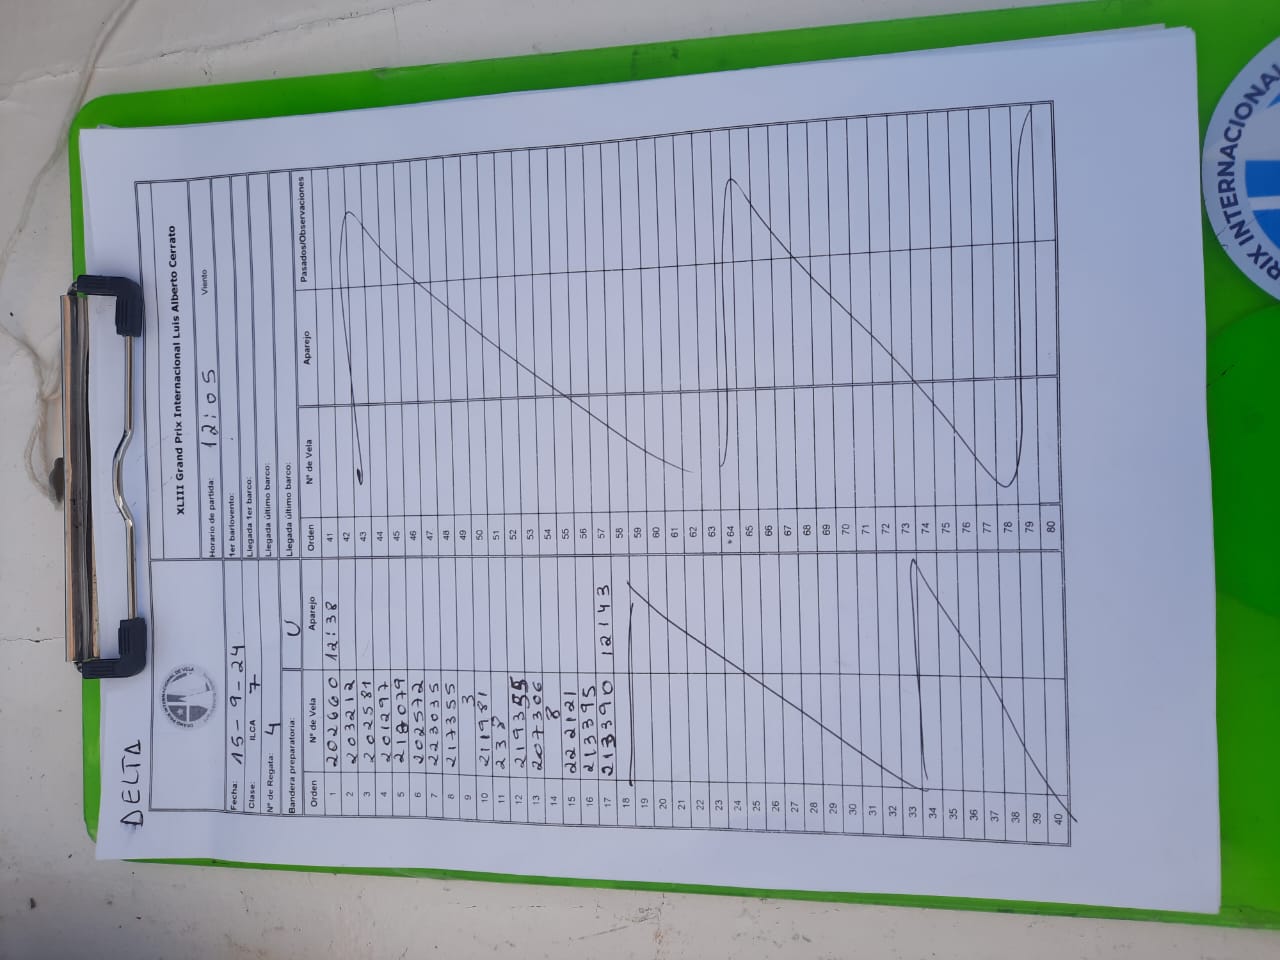 DELTA
GRAND PRIX INTERNACIONAL DE VELA
XLIII Grand Prix Internacional Luis Alberto Cerrato
Horario de partida: 12:05 Viento
Fecha: 15-9-24
1er barlovento:
Clase: ILCA 7
Llegada 1er barco:
N° de Regata: 4
Llegada último barco:
Bandera preparatoria: U
Llegada último barco:
Orden N° de Vela Aparejo
1 202660 12:38
2 203212
3 202581
4 201297
5 218079
6 202572
7 223035
8 217355
9 3
10 211981
11 238
12 219355
13 207306
14 8
15 222121
16 213395
17 213390 12:43
18
19
20
21
22
23
24
25
26
27
28
29
30
31
32
33
34
35
36
37
38
39
40
Orden N° de Vela Aparejo Pasados/Observaciones
41
42
43
44
45
46
47
48
49
50
51
52
53
54
55
56
57
58
59
60
61
62
63
64
65
66
67
68
69
70
71
72
73
74
75
76
77
78
79
80
RIX INTERNACIONAL